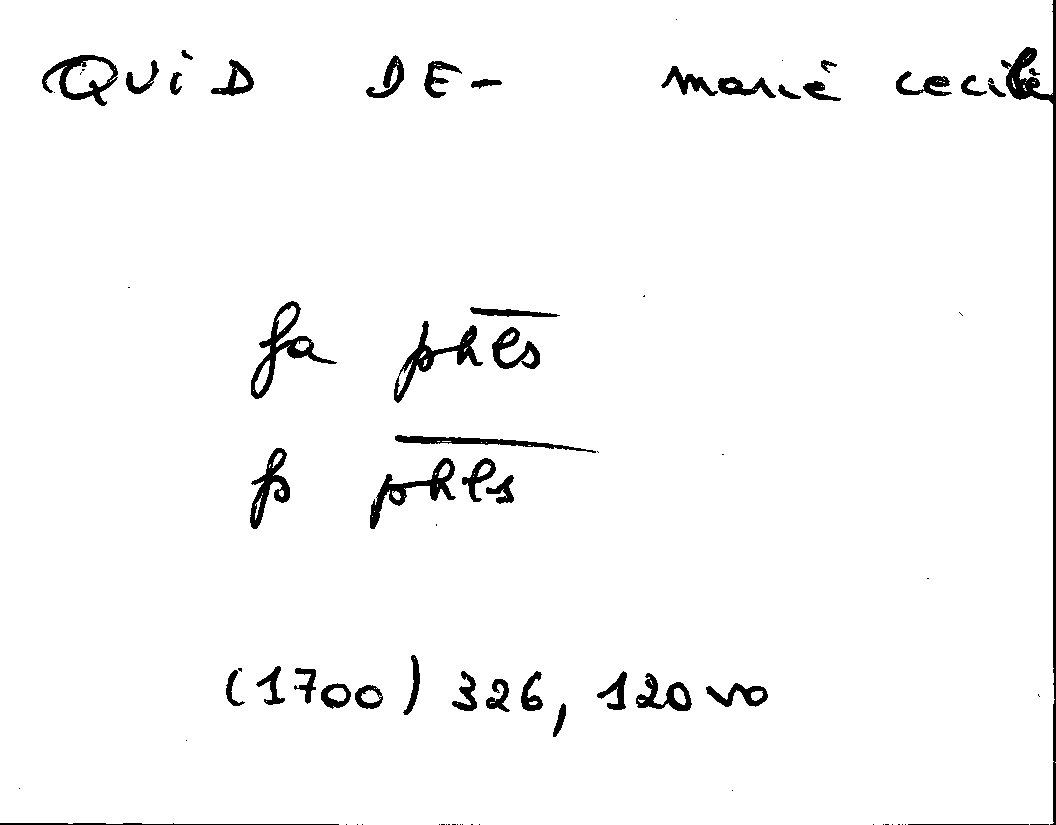 QUiD DE- marie cecile
fa phls
p phls
(1700) 326, 120 vo